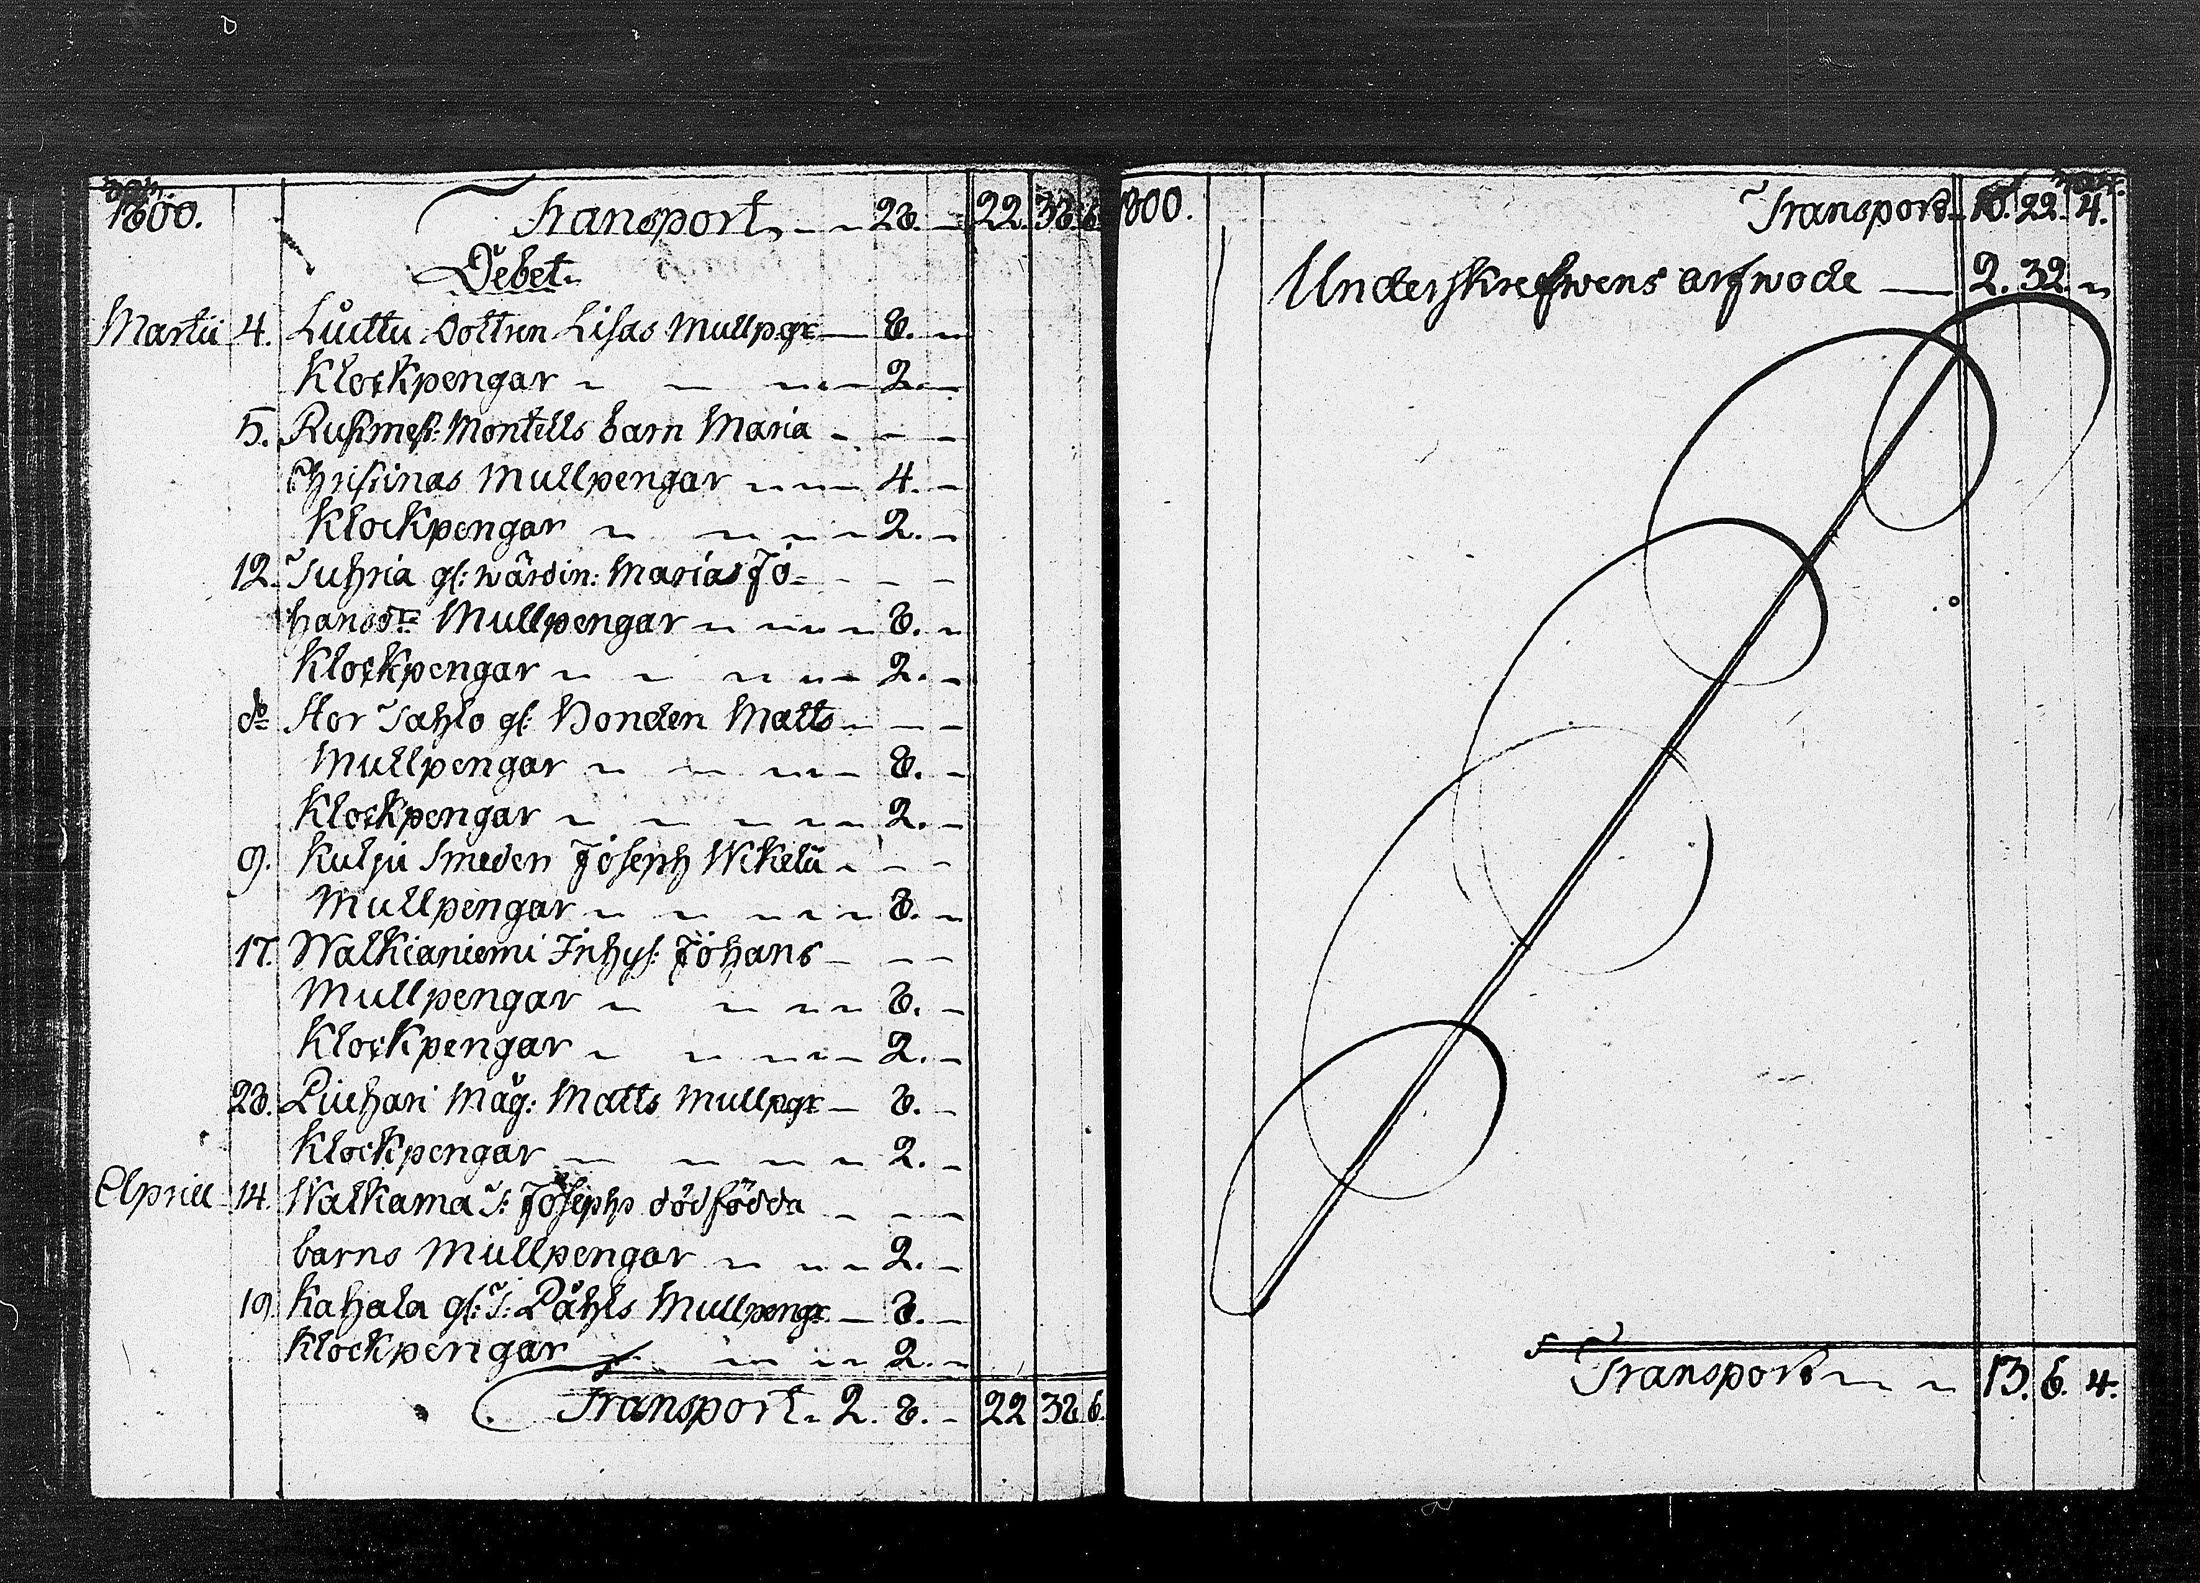 1800. Transport, - - 28. - 22. 38. 6.
Debet.
Martii 4. Luttu Dottren Lisas Mullpgr - 8. -
Klockpengar - - - 2. -
5. Rustmest: Montells barn Maria - - -
Christinas Mullpengar - - - 4. -
Klockpengar - - - 2. -
12. Tuhria gl: wärdin: Marias Jo= - - -
hansdr Mullpengar - - - 8. -
Klockpengar - - - 2. -
do Stor Tahlo gl: Bonden Matts - - -
Mullpengar - - - 8. -
Klockpengar - - - 2. -
9. Kulju Smeden Joseph Wikelä - - -
Mullpengar - - - 8. -
17. Walkianiemi Inhys: Johans - - -
Mullpengar - - - 8. -
Klockpengar - - - 2. -
28. Piuhari Måg: Matts Mullpgr - 8. -
Klockpengar - - - 2. -
April 14. Walkama T: Josephs dödfödda - - -
barns Mullpengar - - - 2. -
19. Kahala gl: T: Påhls Mullpengr - 8. -
Klockpengar - - - 2. -
Transport - 2. 8. - 22 38 6.
1800. Transport - 10. 22. 4.
Underskrefwens arfwode - 2. 32. -
Transport - - 13. 6. 4.